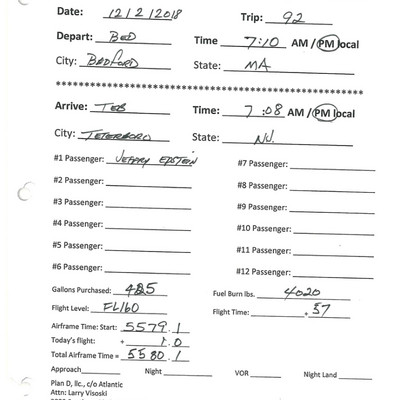 Date: 12/2/2018 Trip: 92
Depart: BED Time 7:10 AM / PM local
City: BEDFORD State: MA
************************************************************
Arrive: TEB Time: 7:08 AM / PM local
City: TETERBORO State: NJ.
#1 Passenger: JEFFRY EPSTEIN #7 Passenger:
#2 Passenger: #8 Passenger:
#3 Passenger: #9 Passenger:
#4 Passenger: #10 Passenger:
#5 Passenger: #11 Passenger:
#6 Passenger: #12 Passenger:
Gallons Purchased: 485 Fuel Burn lbs. 4020
Flight Level: FL160 Flight Time: .57
Airframe Time: Start: 5579.1
Today's flight: + 1.0
Total Airframe Time = 5580.1
Approach Night VOR Night Land
Plan D, llc, c/o Atlantic
Attn: Larry Visoski